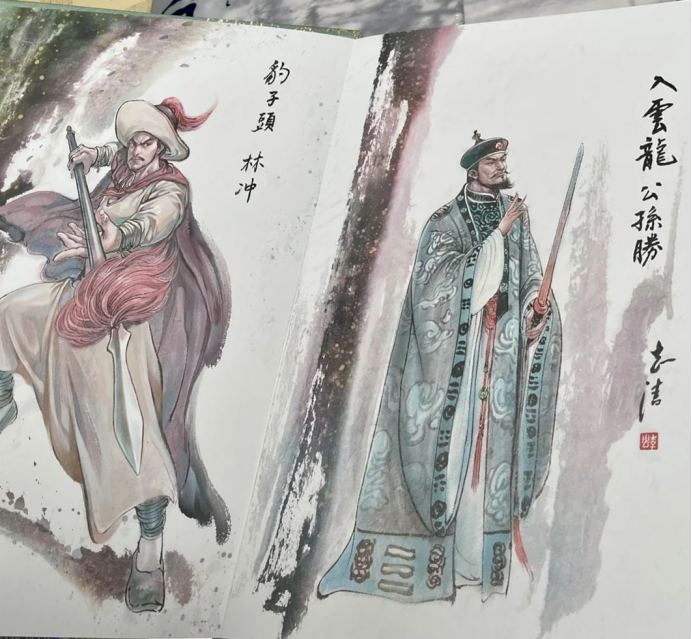 豹子頭 林冲
入雲龍 公孫勝
志清